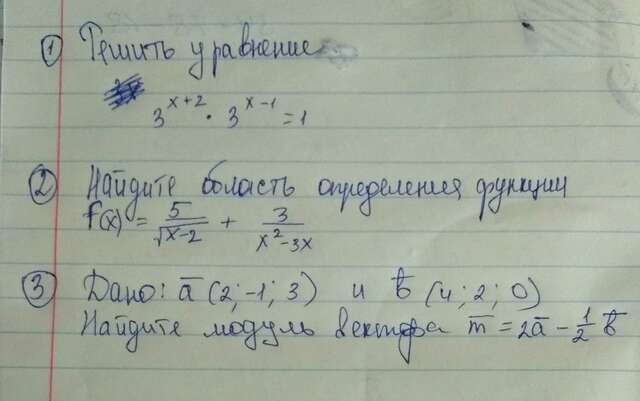 ① Решить уравнение
3^{x+2} · 3^{x-1} = 1
② Найдите область определения функции
f(x) = \frac{5}{\sqrt{x-2}} + \frac{3}{x^2-3x}
③ Дано: a̅ (2; -1; 3) и b̅ (4; 2; 0)
Найдите модуль вектора m̅ = 2a̅ - \frac{1}{2} b̅